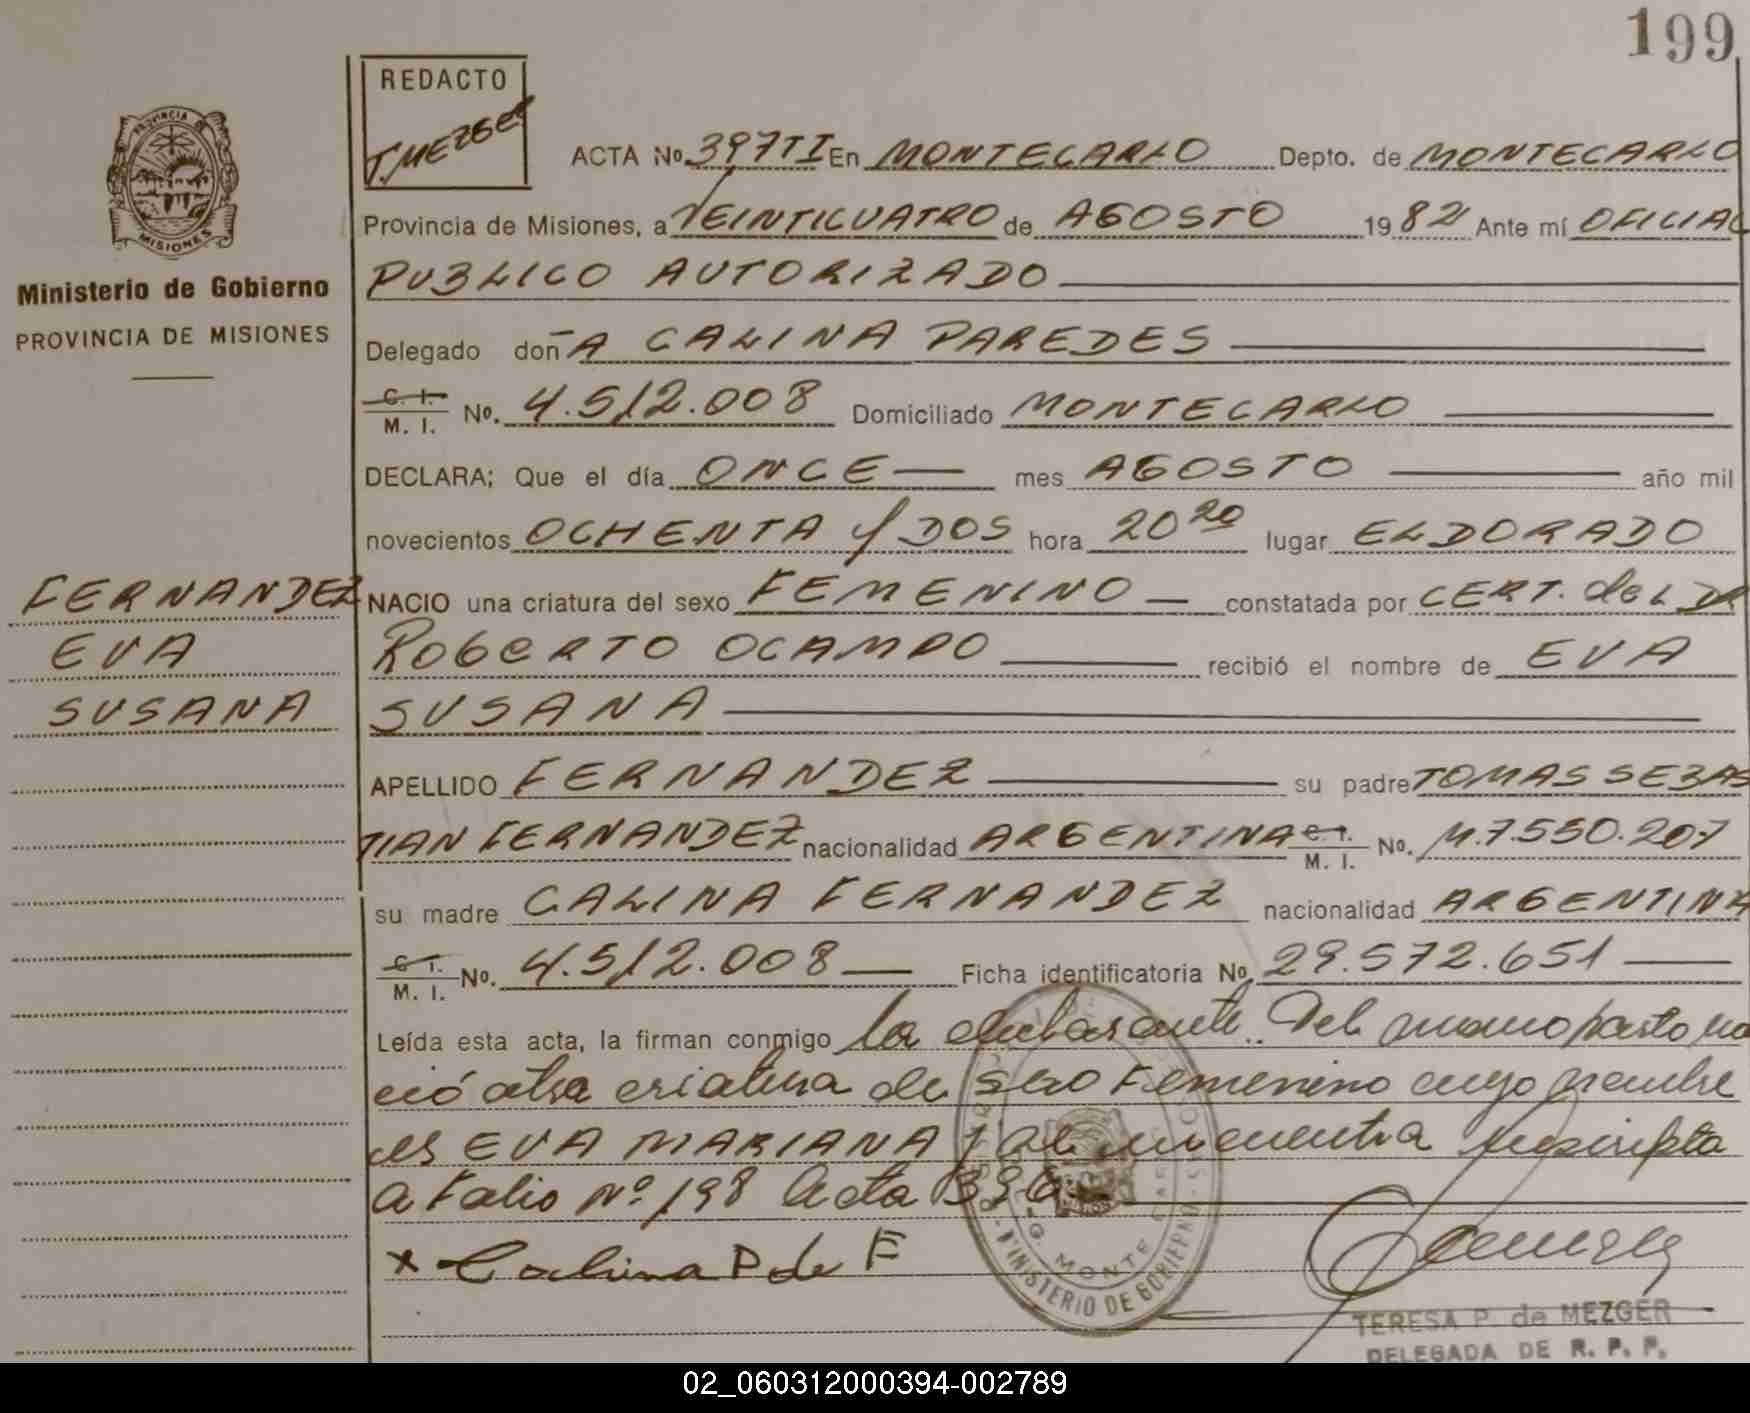 199
REDACTO
T. MEZGER
PROVINCIA DE
MISIONES
Ministerio de Gobierno
PROVINCIA DE MISIONES
ACTA No. 397 TI En MONTECARLO Depto. de MONTECARLO
Provincia de Misiones, a VEINTICUATRO de AGOSTO 1982 Ante mí OFICIAL
PUBLICO AUTORIZADO
Delegado doñA CALINA PAREDES
C. I. / M. I. No. 4.512.008 Domiciliado MONTECARLO
DECLARA; Que el día ONCE mes AGOSTO año mil
novecientos OCHENTA y DOS hora 20 20 lugar ELDORADO
FERNANDEZ
EVA
SUSANA
NACIO una criatura del sexo FEMENINO constatada por CERT. del DR
ROBERTO OCAMPO recibió el nombre de EVA
SUSANA
APELLIDO FERNANDEZ su padre TOMAS SEBAS
TIAN FERNANDEZ nacionalidad ARGENTINA C. I. / M. I. No. M.7.550.207
su madre CALINA FERNANDEZ nacionalidad ARGENTINA
C. I. / M. I. No. 4.512.008 Ficha identificatoria No. 29.572.651
Leída esta acta, la firman conmigo la declarante. Del mismo parto na
ció otra criatura de sexo Femenino cuyo nombre
es EVA MARIANA y se encuentra inscripta
a Folio Nº 198 Acta 396
x Calina P de F
MINISTERIO DE GOBIERNO
TERESA P. de MEZGER
DELEGADA DE R. P. P.
02_060312000394-002789